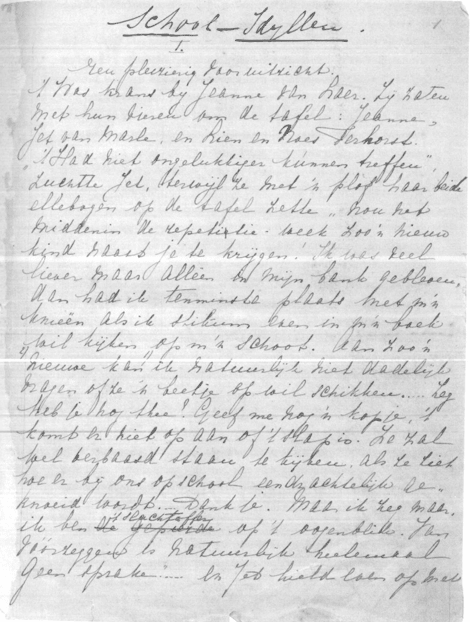 School-Idyllen. 1
I.
Een pleizierig vooruitzicht.
't Was krans bij Jeanne van Laer. Zij zaten
met hun vieren om de tafel: Jeanne,
Jet van Marle, en Lien en Noes Terhorst.
"'t Had niet ongelukkiger kunnen treffen",
zuchtte Jet, terwijl ze met 'n plof haar beide
ellebogen op de tafel zette "nou net
middenin de repetitie-week zoo'n nieuw
kind naast je te krijgen! Ik was veel
liever maar alleen in mijn bank gebleven,
dan had ik tenminste plaats met m'n
knieën als ik stikum even in m'n boek
wil kijken op m'n schoot. Aan zoo'n
nieuwe kan ik natuurlijk niet dadelijk
vragen of ze 'n beetje op wil schikken..... Zeg
heb je nog thee? Geef me nog 'n kopje, 't
komt er niet op aan of 't slap is. Ze zal
wel verbaasd staan te kijken, als ze ziet
hoe er bij ons op school eendrachtelijk ge-
knoeid wordt.... Dank je. Maar ik zeg maar,
ik ben de 't slachtoffer op 't oogenblik. Van
vóórzeggen is natuurlijk heelemaal
geen sprake..... En Jet hield even op met